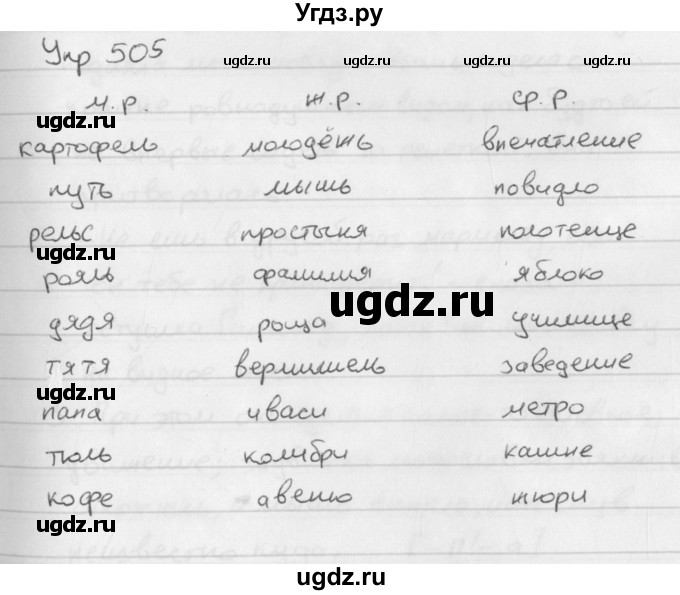 Угдз.ру
Упр 505
ugdz.ru ugdz.ru ugdz.ru
м.р. ж.р. ср.р.
ugdz.ru
картофель молодёжь впечатление
путь мышь повидло
рельс простыня полотенце
ugdz.ru
рояль фамилия яблоко
ugdz.ru
дядя роща училище
тятя вермишель заведение
ugdz.ru
папа иваси метро
тюль колибри кашне
кофе авеню жюри
ugdz.ru
ugdz.ru ugdz.ru ugdz.ru
ugdz.ru